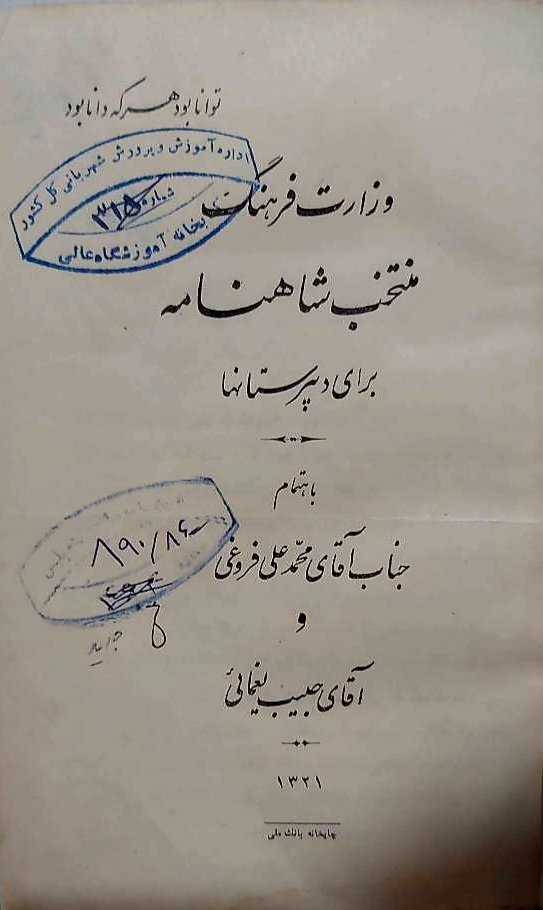 توانا بود هر که دانا بود
اداره آموزش و پرورش شهربانی کل کشور
شماره ۳۱۵
کتابخانه آموزشگاه عالی
وزارت فرهنگ
منتخب شاهنامه
برای دبیرستانها
باهتمام
جناب آقای محمد علی فروغی
و
آقای حبیب یغمائی
۸۹۰/۸۶
۱۳۲۱
چاپخانه بانک ملی